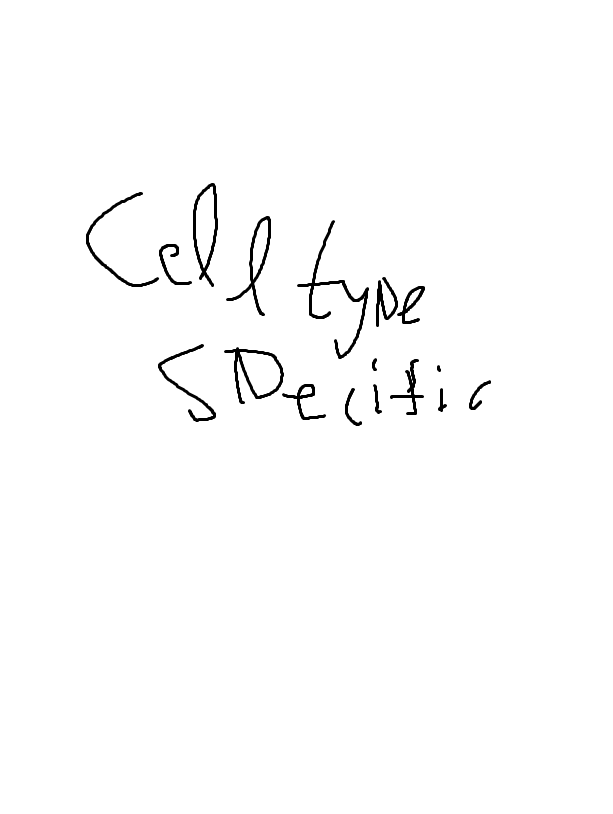 Cell type
specific